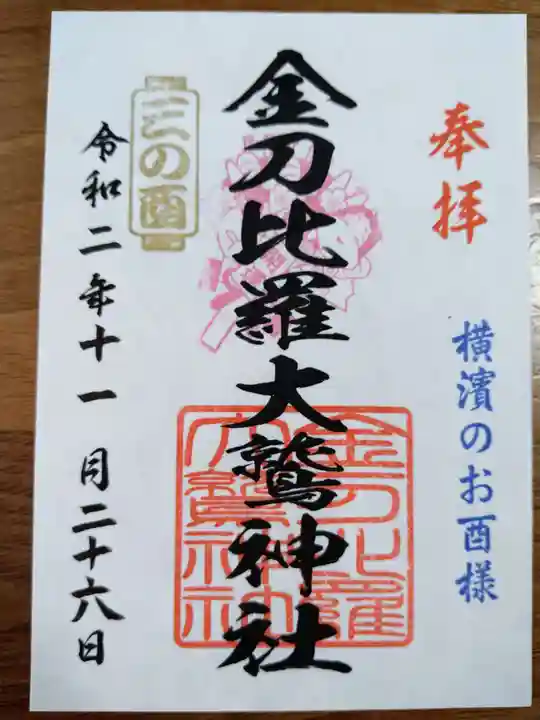 奉拝
横濱のお酉様
金刀比羅大鷲神社
金刀比羅
大鷲神社
三の酉
令和二年十一月二十六日